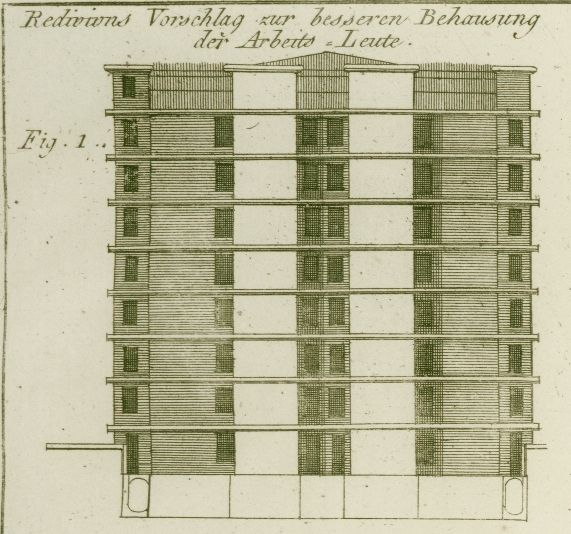 Redivivns Vorschlag zur besseren Behausung
der Arbeits = Leute.
Fig. 1.